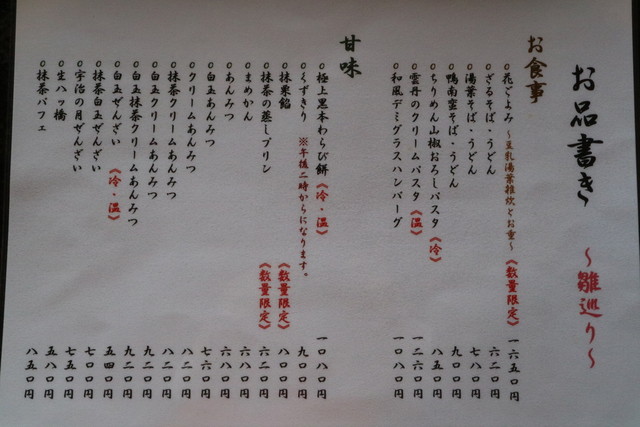 お品書き ～雛巡り～
お食事
○花ごよみ ～豆乳湯葉雑炊とお重～ 《数量限定》 一六五〇円
○ざるそば・うどん 六二〇円
○湯葉そば・うどん 七八〇円
○鴨南蛮そば・うどん 九〇〇円
○ちりめん山椒おろしパスタ 《冷》 八五〇円
○雲丹のクリームパスタ 《温》 一二六〇円
○和風デミグラスハンバーグ 一〇八〇円
甘味
○極上黒本わらび餅 《冷・温》 一〇八〇円
○くずきり ※午後二時からになります。 九〇〇円
○抹栗餡 《数量限定》 八〇〇円
○抹茶の蒸しプリン 《数量限定》 六二〇円
○まめかん 六八〇円
○あんみつ 六八〇円
○白玉あんみつ 七六〇円
○クリームあんみつ 八二〇円
○抹茶クリームあんみつ 八二〇円
○白玉クリームあんみつ 九二〇円
○白玉抹茶クリームあんみつ 九二〇円
○白玉ぜんざい 《冷・温》 五四〇円
○抹茶白玉ぜんざい 七〇〇円
○宇治の月ぜんざい 七五〇円
○生八ッ橋 五八〇円
○抹茶パフェ 八五〇円